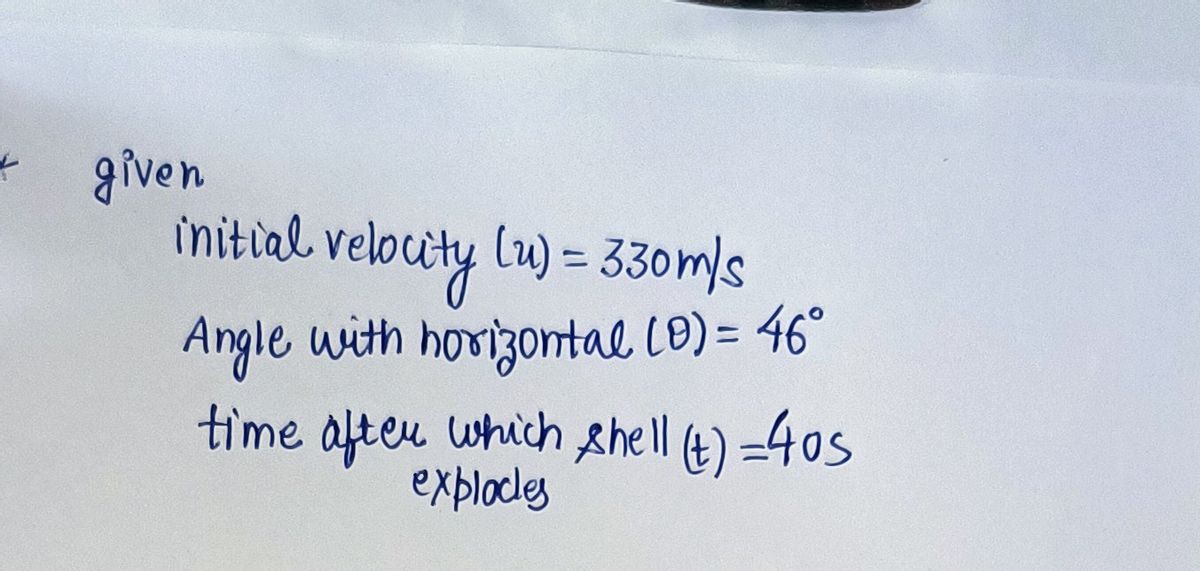 * given
initial velocity (u) = 330m/s
Angle with horizontal (θ) = 46°
time after which shell (t) = 40s
explodes